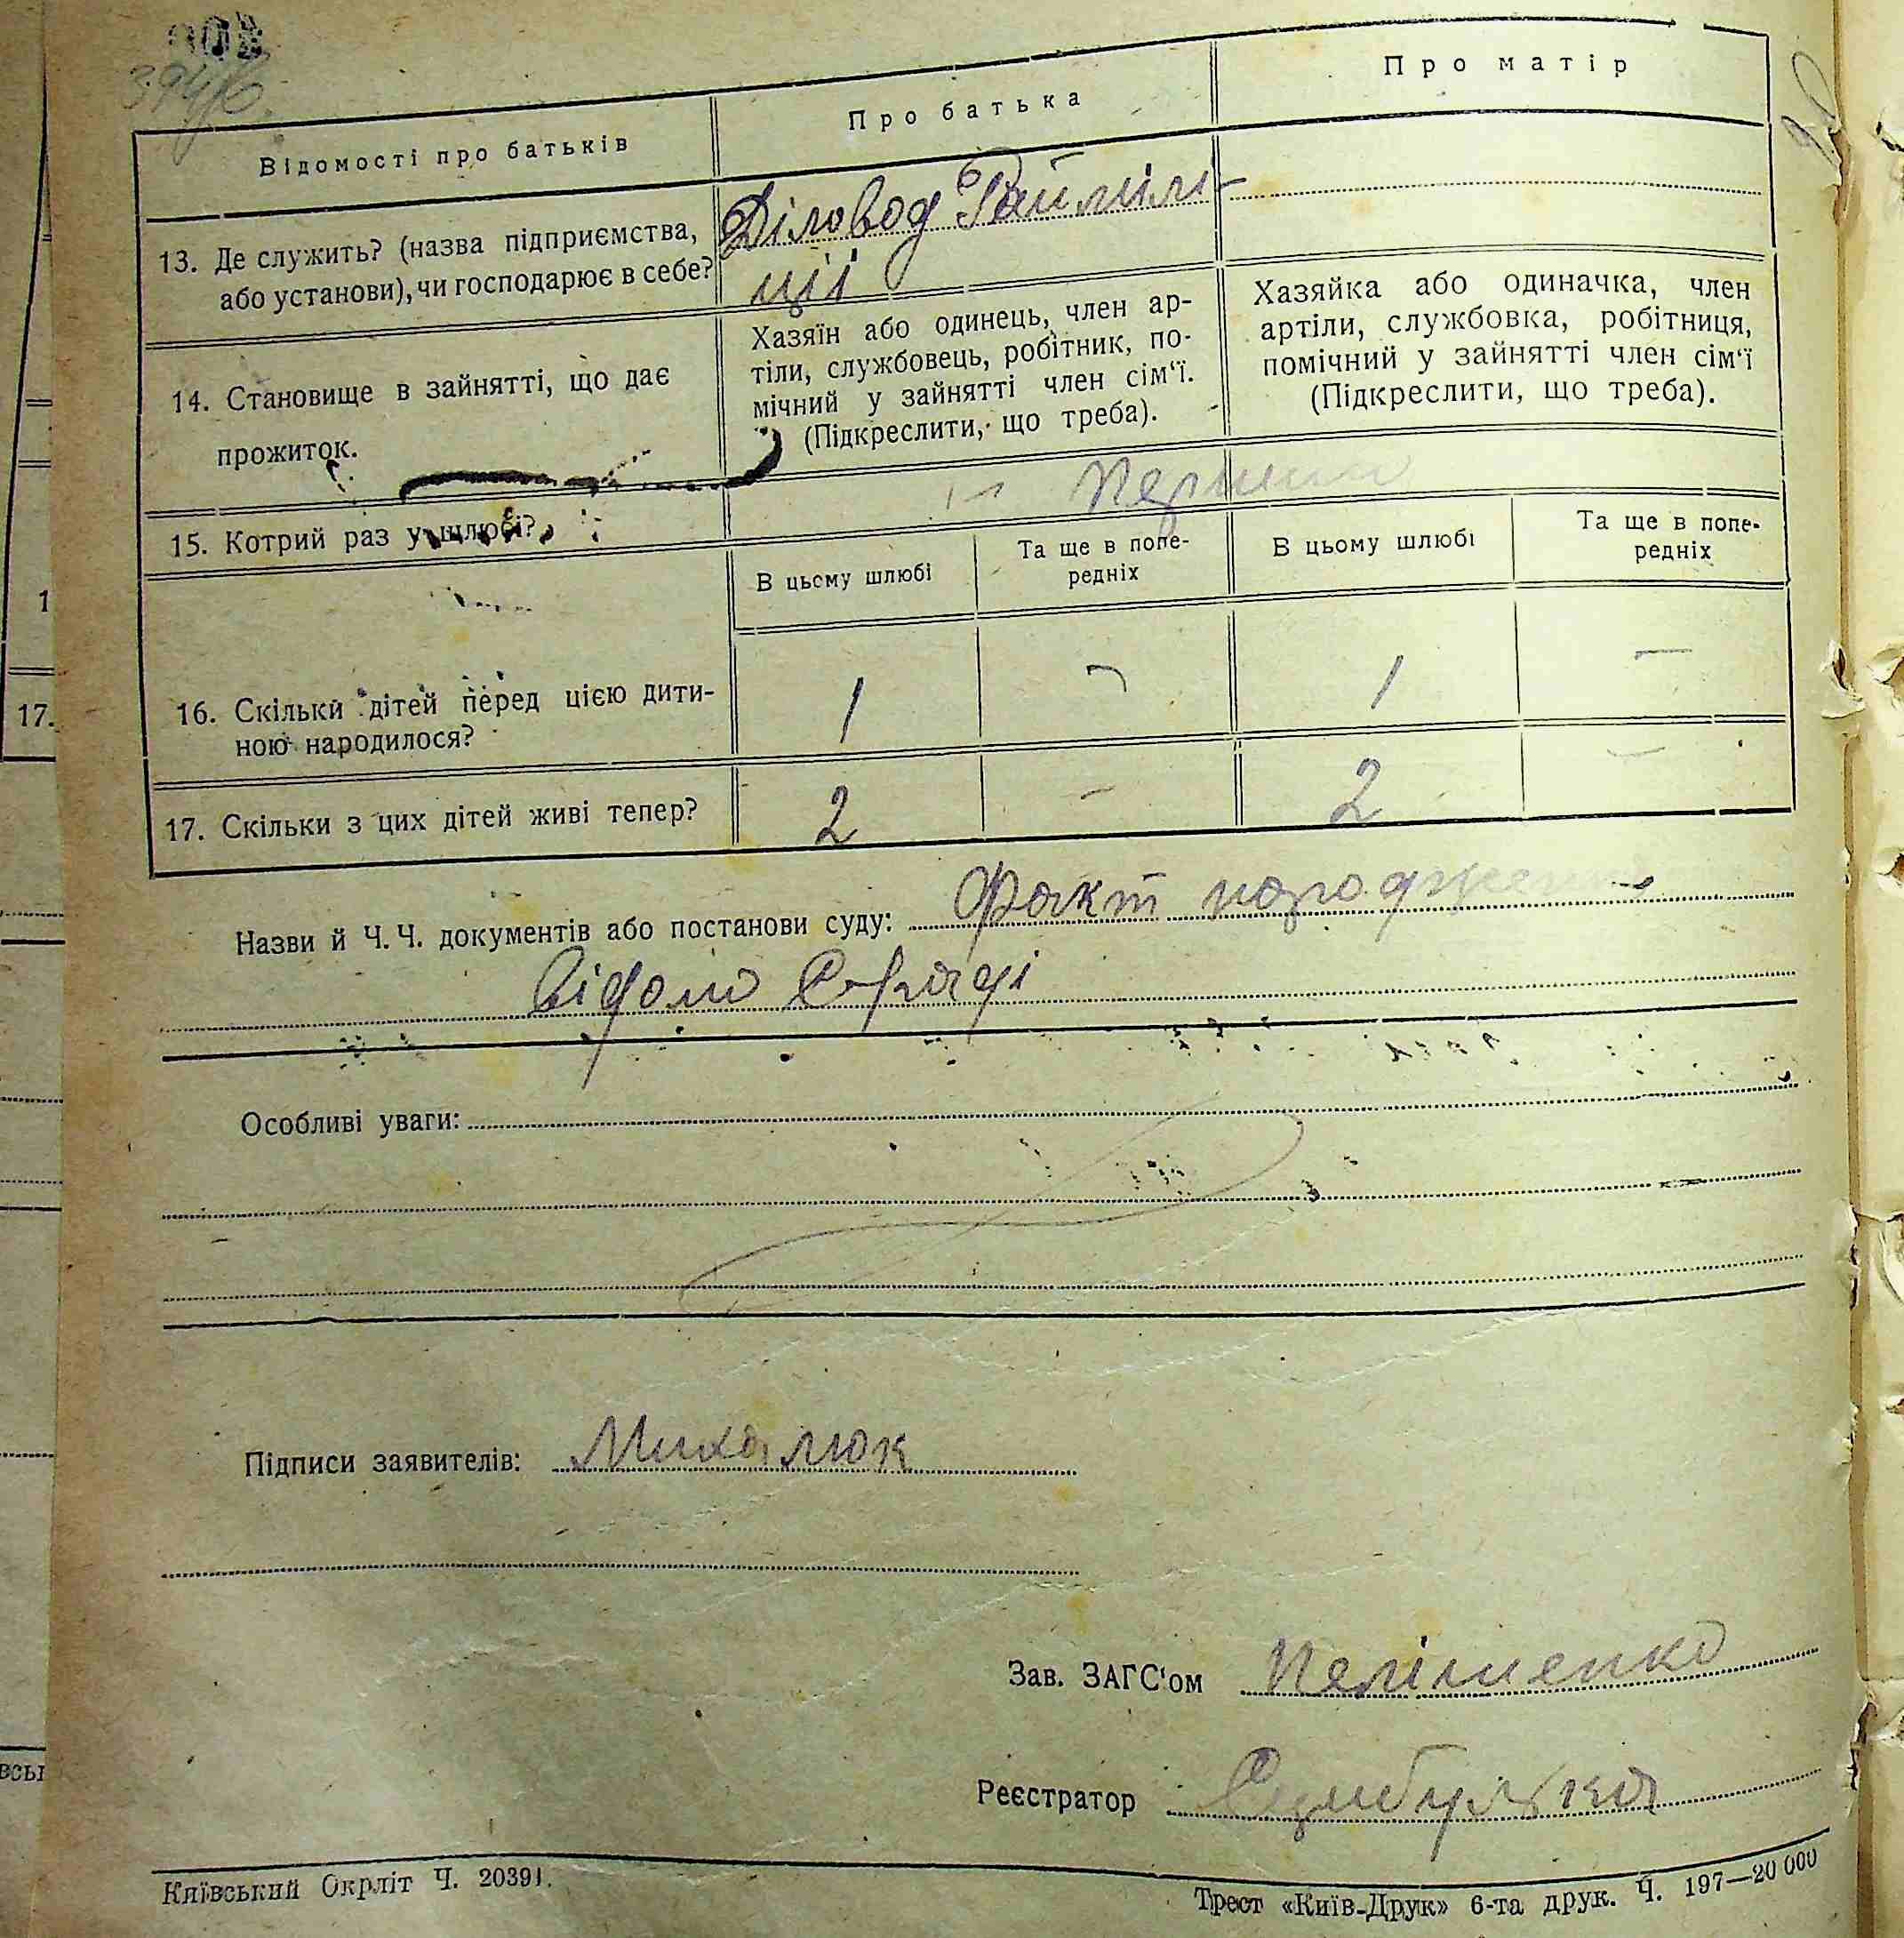 394/6
Відомості про батьків
Про батька
Про матір
13. Де служить? (назва підприємства,
або установи), чи господарює в себе?
Діловод Райміли-
ції
14. Становище в зайнятті, що дає
прожиток.
Хазяїн або одинець, член ар-
тіли, службовець, робітник, по-
мічний у зайнятті член сім‘ї.
(Підкреслити, що треба).
Хазяйка або одиначка, член
артіли, службовка, робітниця,
помічний у зайнятті член сім‘ї
(Підкреслити, що треба).
15. Котрий раз у шлюбі?
В цьому шлюбі
Та ще в попе-
редніх
В цьому шлюбі
Та ще в попе-
редніх
16. Скільки дітей перед цією дити-
ною народилося?
1 – 1 –
17. Скільки з цих дітей живі тепер?
2 – 2 –
Назви й Ч. Ч. документів або постанови суду: Факт народження
відомо
Особливі уваги:
Підписи заявителів: Михалюк
Зав. ЗАГС‘ом
Реєстратор
Київський Окрліт Ч. 20391.
Трест «Київ-Друк» 6-та друк. Ч. 197—20 000
1
17.